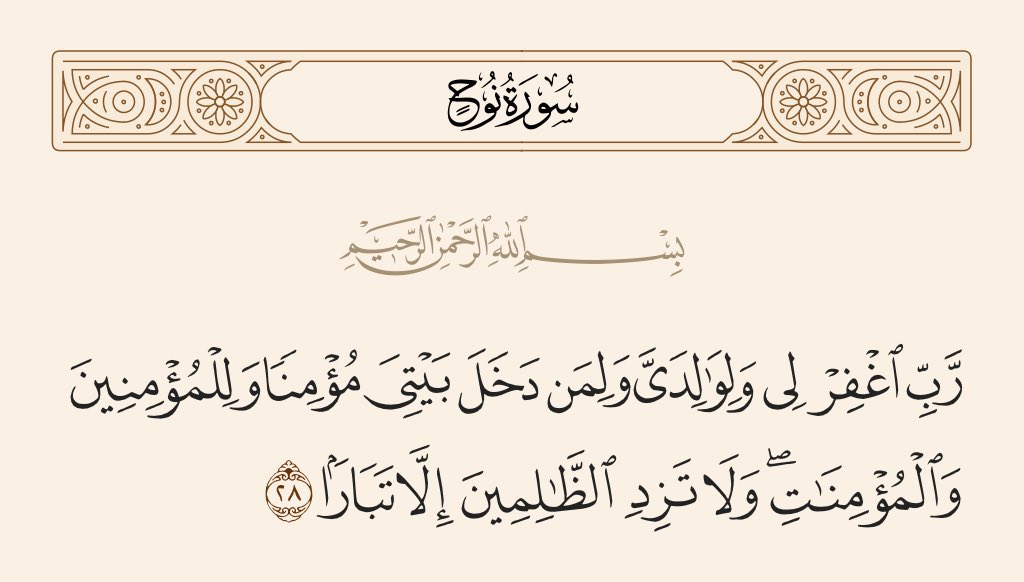 سُورَةُ نُوحٍ
بِسْمِ ٱللَّهِ ٱلرَّحْمَٰنِ ٱلرَّحِيمِ
رَّبِّ ٱغْفِرْ لِى وَلِوَٰلِدَىَّ وَلِمَن دَخَلَ بَيْتِىَ مُؤْمِنًا وَلِلْمُؤْمِنِينَ
وَٱلْمُؤْمِنَـٰتِ ۖ وَلَا تَزِدِ ٱلظَّـٰلِمِينَ إِلَّا تَبَارًۢا ٢٨